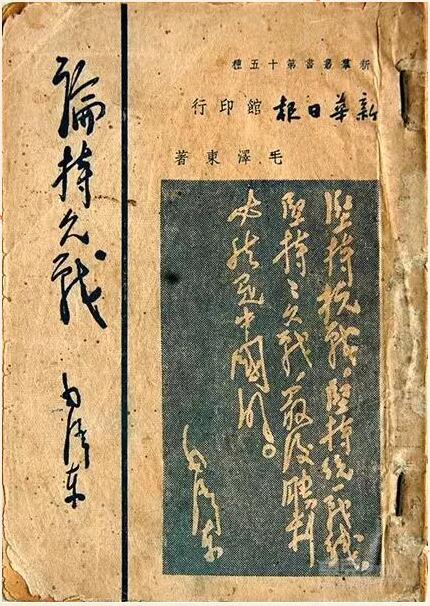 新羣叢書第十五種
新華日報館印行
毛澤東著
堅持抗戰，堅持統一战线，
堅持々久战，最後勝利
必然是中國的。
毛澤东
論持久戰
毛澤东